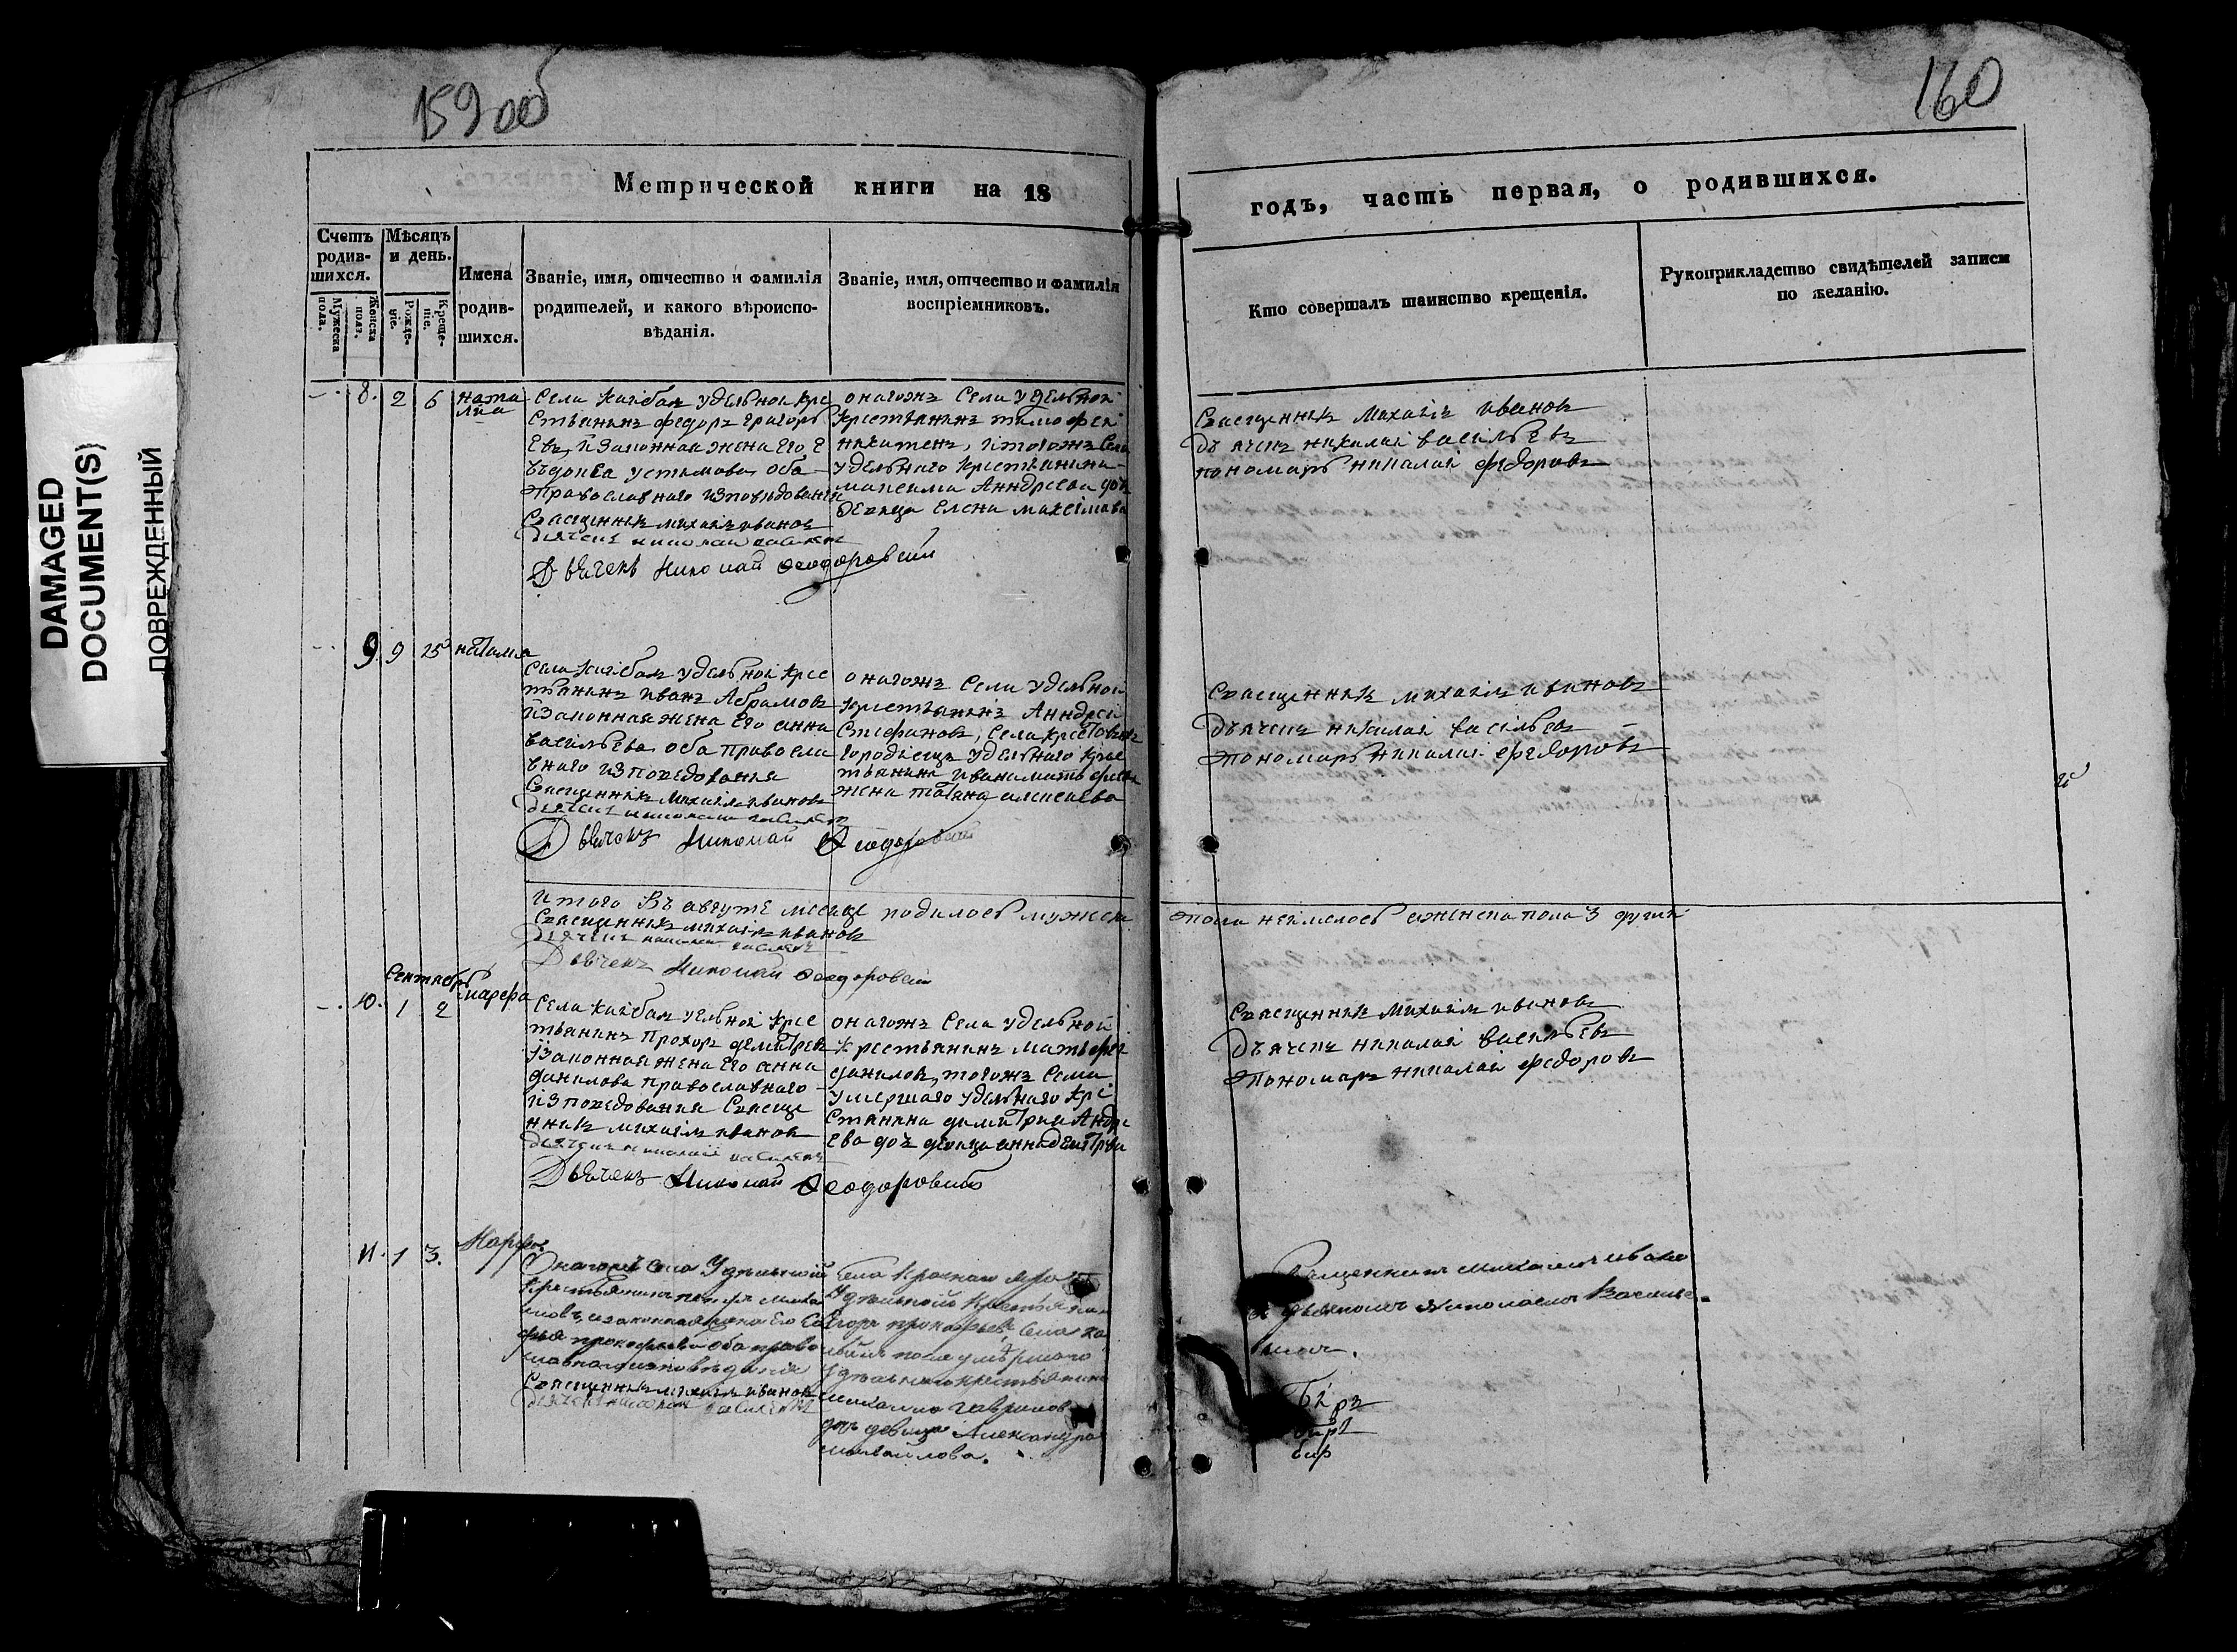 159об
160
DAMAGED
DOCUMENT(S)
ПОВРЕЖДЕННЫЙ
Метрической книги на 18
годъ, часть первая, о родившихся.
Счетъ родив-
шихся.
Мужеска пола.
Женска пола.
Мѣсяцъ
и день.
Рожде-
ніе.
Креще-
ніе.
Имена
родив-
шихся.
Званіе, имя, отчество и фамилія
родителей, и какого вѣроиспо-
вѣданія.
Званіе, имя, отчество и фамилія
воспріемниковъ.
Кто совершалъ таинство крещенія.
Рукоприкладство свидѣтелей записи
по желанію.
8. 2 6 ната
лиа
Села Каибам удельной Кре
стьянинъ федоръ Григорь
евъ, и законная жена его е
въдокеа устимова оба
православнаго изповѣдованиа
Священникъ михаілъ ивановъ
дьячекъ николаи васильевъ
Дьячекъ Николай Феодоровъ
онагожъ Села удельной
крестьянинъ тимофеи
никитенъ, итогожъ Села
удельнаго крестьянина
максима Андреева доч
девица елена максімова
Священникъ михаілъ ивановъ
дъячекъ николаі васільевъ
пономарь николаі федоровъ
9. 9 25 наталиа
Села Каибам удельной Кре
тьянинъ иванъ Абрамовъ
изаконная жена его анна
васільева оба правосла
внаго изповедованиа
Священнікъ михаілъ ивановъ
дьячекъ николаи васильевъ
Дьячекъ Николай Феодоровъ
онагожъ Села удельной
крестьянинъ Андреи
Стефановъ, Села
городіеща удельнаго крес
тьянина ивана
жена татяна алексеева
Священникъ михаілъ ивановъ
дъячекъ николаі васільевъ
пономарь николаі федоровъ
итого Въ августе месяце родилось мужска
пола неимелось аженска пола 3
Священнікъ михаілъ ивановъ
дьячекъ николаи васильевъ
Дьячекъ Николай Феодоровъ
Сентябрь
10. 1 2 марфа
Села Каибам уельной Кре
тьянинъ Прохоръ демитрев
изаконная жена его анна
данилова православнаго
изповедования Свяще
нникъ михаілъ ивановъ
дьячекъ николаи васильевъ
Дьячекъ Николай Феодоровъ
онагожъ Села удельной
Крестьянинъ матьфеи
даниловъ, тогожъ Села
умершаго удельнаго кре
стянина димитрия Андре
ева доч девица анна
Священникъ михаілъ ивановъ
дъячекъ николаі васильевъ
пономарь николаі федоровъ
11. 1 3. Марфа
Онагожъ села Удѣльной
Крестьянинъ петръ михаи
ловъ, изаконная жена Его Со
фья прокофьева оба право
славнаго исповѣдания
Священникъ михаілъ ивановъ
Села Краснаго Яра
Удѣльной Крестьянинъ
Егоръ прокофьевъ Села
после умершаго
Удѣльнаго крестьянина
михаила гаврилов
дочь девица Александра
михайлова.
Священникъ михаилъ ивано
дьячкомъ Николаемъ Василье